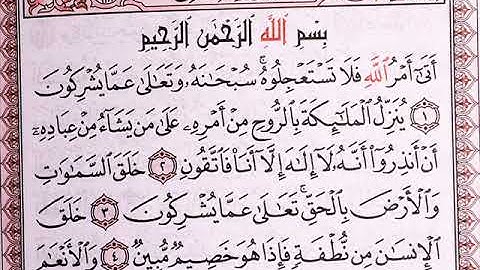 بِسْمِ اللَّهِ الرَّحْمَٰنِ الرَّحِيمِ
أَتَىٰ أَمْرُ اللَّهِ فَلَا تَسْتَعْجِلُوهُ ۚ سُبْحَانَهُ وَتَعَالَىٰ عَمَّا يُشْرِكُونَ
١ يُنَزِّلُ الْمَلَائِكَةَ بِالرُّوحِ مِنْ أَمْرِهِ عَلَىٰ مَنْ يَشَاءُ مِنْ عِبَادِهِ
أَنْ أَنْذِرُوا أَنَّهُ لَا إِلَٰهَ إِلَّا أَنَا فَاتَّقُونِ ٢ خَلَقَ السَّمَاوَاتِ
وَالْأَرْضَ بِالْحَقِّ ۚ تَعَالَىٰ عَمَّا يُشْرِكُونَ ٣ خَلَقَ
الْإِنْسَانَ مِنْ نُطْفَةٍ فَإِذَا هُوَ خَصِيمٌ مُبِينٌ ٤ وَالْأَنْعَامَ